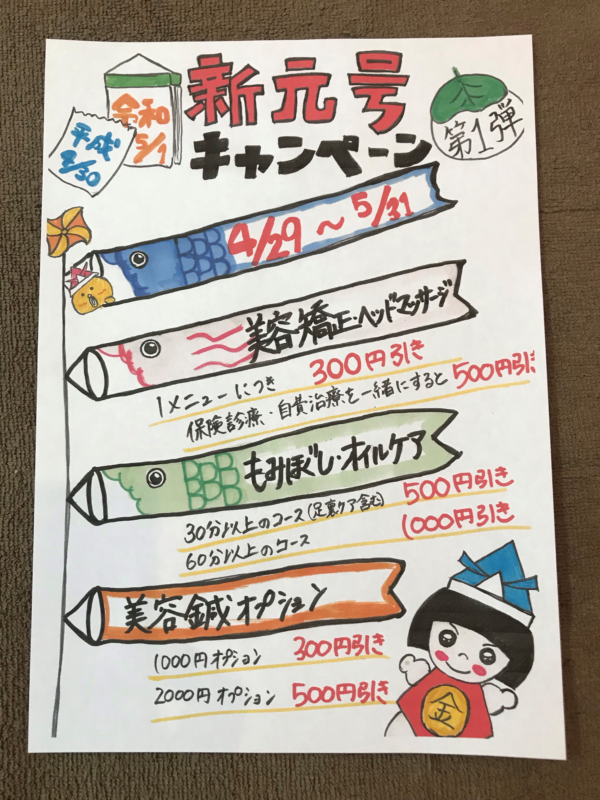 新元号
キャンペーン
第1弾
令和
5/1
平成
4/30
4/29～5/31
美容矯正・ヘッドマッサージ
1メニューにつき 300円引き
保険診療・自費治療を一緒にすると 500円引き
もみほぐし・オイルケア
30分以上のコース(足裏ケア含む) 500円引き
60分以上のコース 1000円引き
美容鍼オプション
1000円オプション 300円引き
2000円オプション 500円引き
金